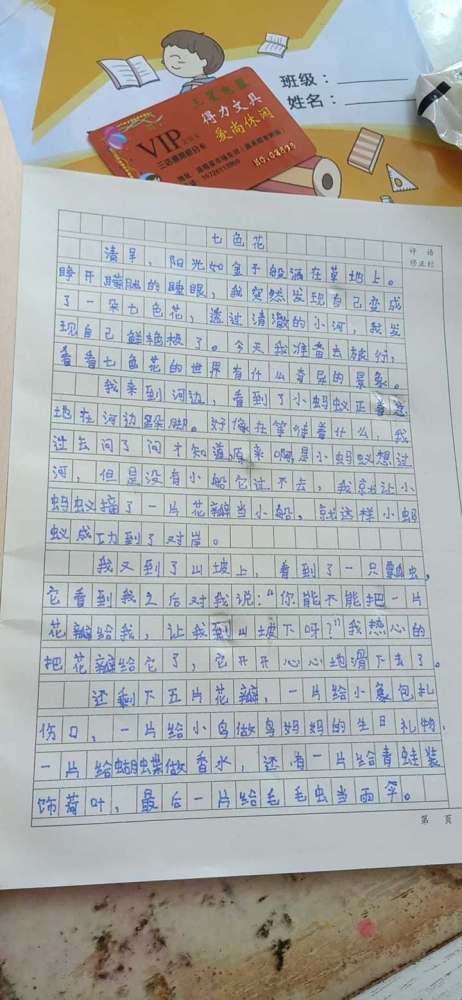 班级：
姓名：
得力文具
爱尚休闲
VIP
NO.
七色花
评语
清早，阳光如金子般洒在草地上。
睁开朦胧的睡眼，我突然发现自己变成
了一朵七色花，透过清澈的小河，我发
现自己鲜艳极了。今天我准备去旅行，
看看七色花的世界有什么奇异的景象。
我来到河边，看到了小蚂蚁正着急
地在河边跺脚。好像在等待着什么，我
过去问了问才知道原来啊是小蚂蚁想过
河，但是没有小船它过不去，我就让小
蚂蚁摘了一片花瓣当小船，就这样小蚂
蚁成功到了对岸。
我又到了山坡上，看到了一只瓢虫，
它看到我之后对我说：“你能不能把一片
花瓣给我，让我到山坡下吗？”我热心的
把花瓣给它了，它开开心心地滑下去了。
还剩下五片花瓣，一片给小象包扎
伤口，一片给小鸟做鸟妈妈的生日礼物，
一片给蝴蝶做香水，还有一片给青蛙装
饰荷叶，最后一片给毛毛虫当雨伞。
第 页